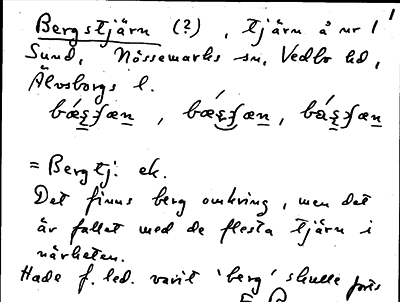 1
Bergstjärn (?), tjärn å nr 1
Sund, Nössemarks sn, Vedbo hd,
Älvsborgs l.
= Bergtj. ek.
Det finns berg omkring, men det
är fallet med de flesta tjärn i
närheten.
Hade f. led. varit 'berg' skulle